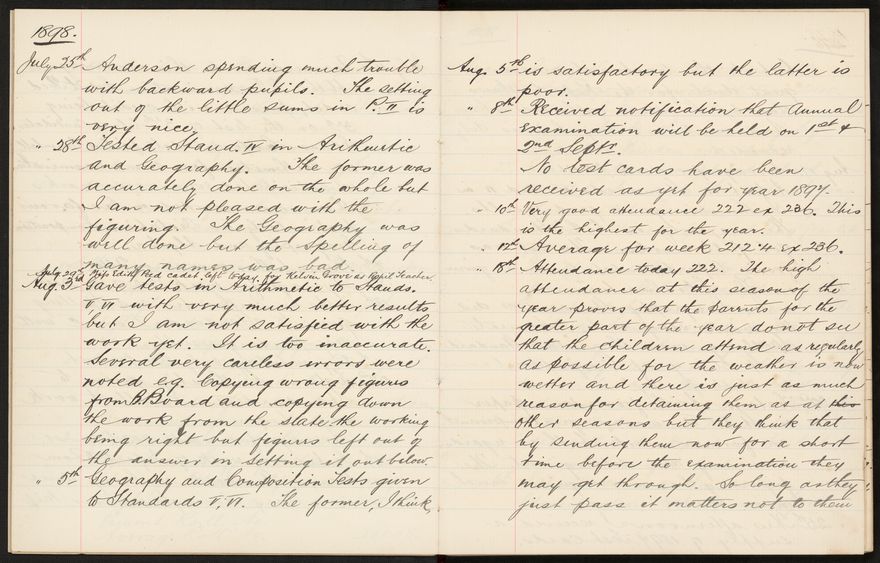 1898.
July 25th Anderson spending much trouble
with backward pupils. The setting
out of the little sums in P. II is
very nice.
" 28th Tested Stand. IV in Arithmetic
and Geography. The former was
accurately done on the whole but
I am not pleased with the
figuring. The Geography was
well done but the spelling of
many names was bad.
July 29th Edith cadet, left today for Kelvin Grove as Pupil Teacher.
Aug. 3rd Gave tests in Arithmetic to Stands.
V, VI with very much better results
but I am not satisfied with the
work yet. It is too inaccurate.
Several very careless errors were
noted e.g. Copying wrong figures
from B. Board and copying down
the work from the slate the working
being right but figures left out of
the answer in setting it out below.
" 5th Geography and Composition Tests given
to Standards V, VI. The former, I think,
Aug. 5th is satisfactory but the latter is
poor.
" 8th Received notification that Annual
examination will be held on 1st &
2nd Septr.
No test cards have been
received as yet for year 1897.
" 10th Very good attendance 222 ex 236. This
is the highest for the year.
" 12th Average for week 212.4 ex 236.
" 18th Attendance today 222. The high
attendance at this season of the
year proves that the parents for the
greater part of the year do not see
that the children attend as regularly
as possible for the weather is now
wetter and there is just as much
reason for detaining them as at this
other seasons but they think that
by sending them now for a short
time before the examination they
may get through. So long as they
just pass it matters not to them